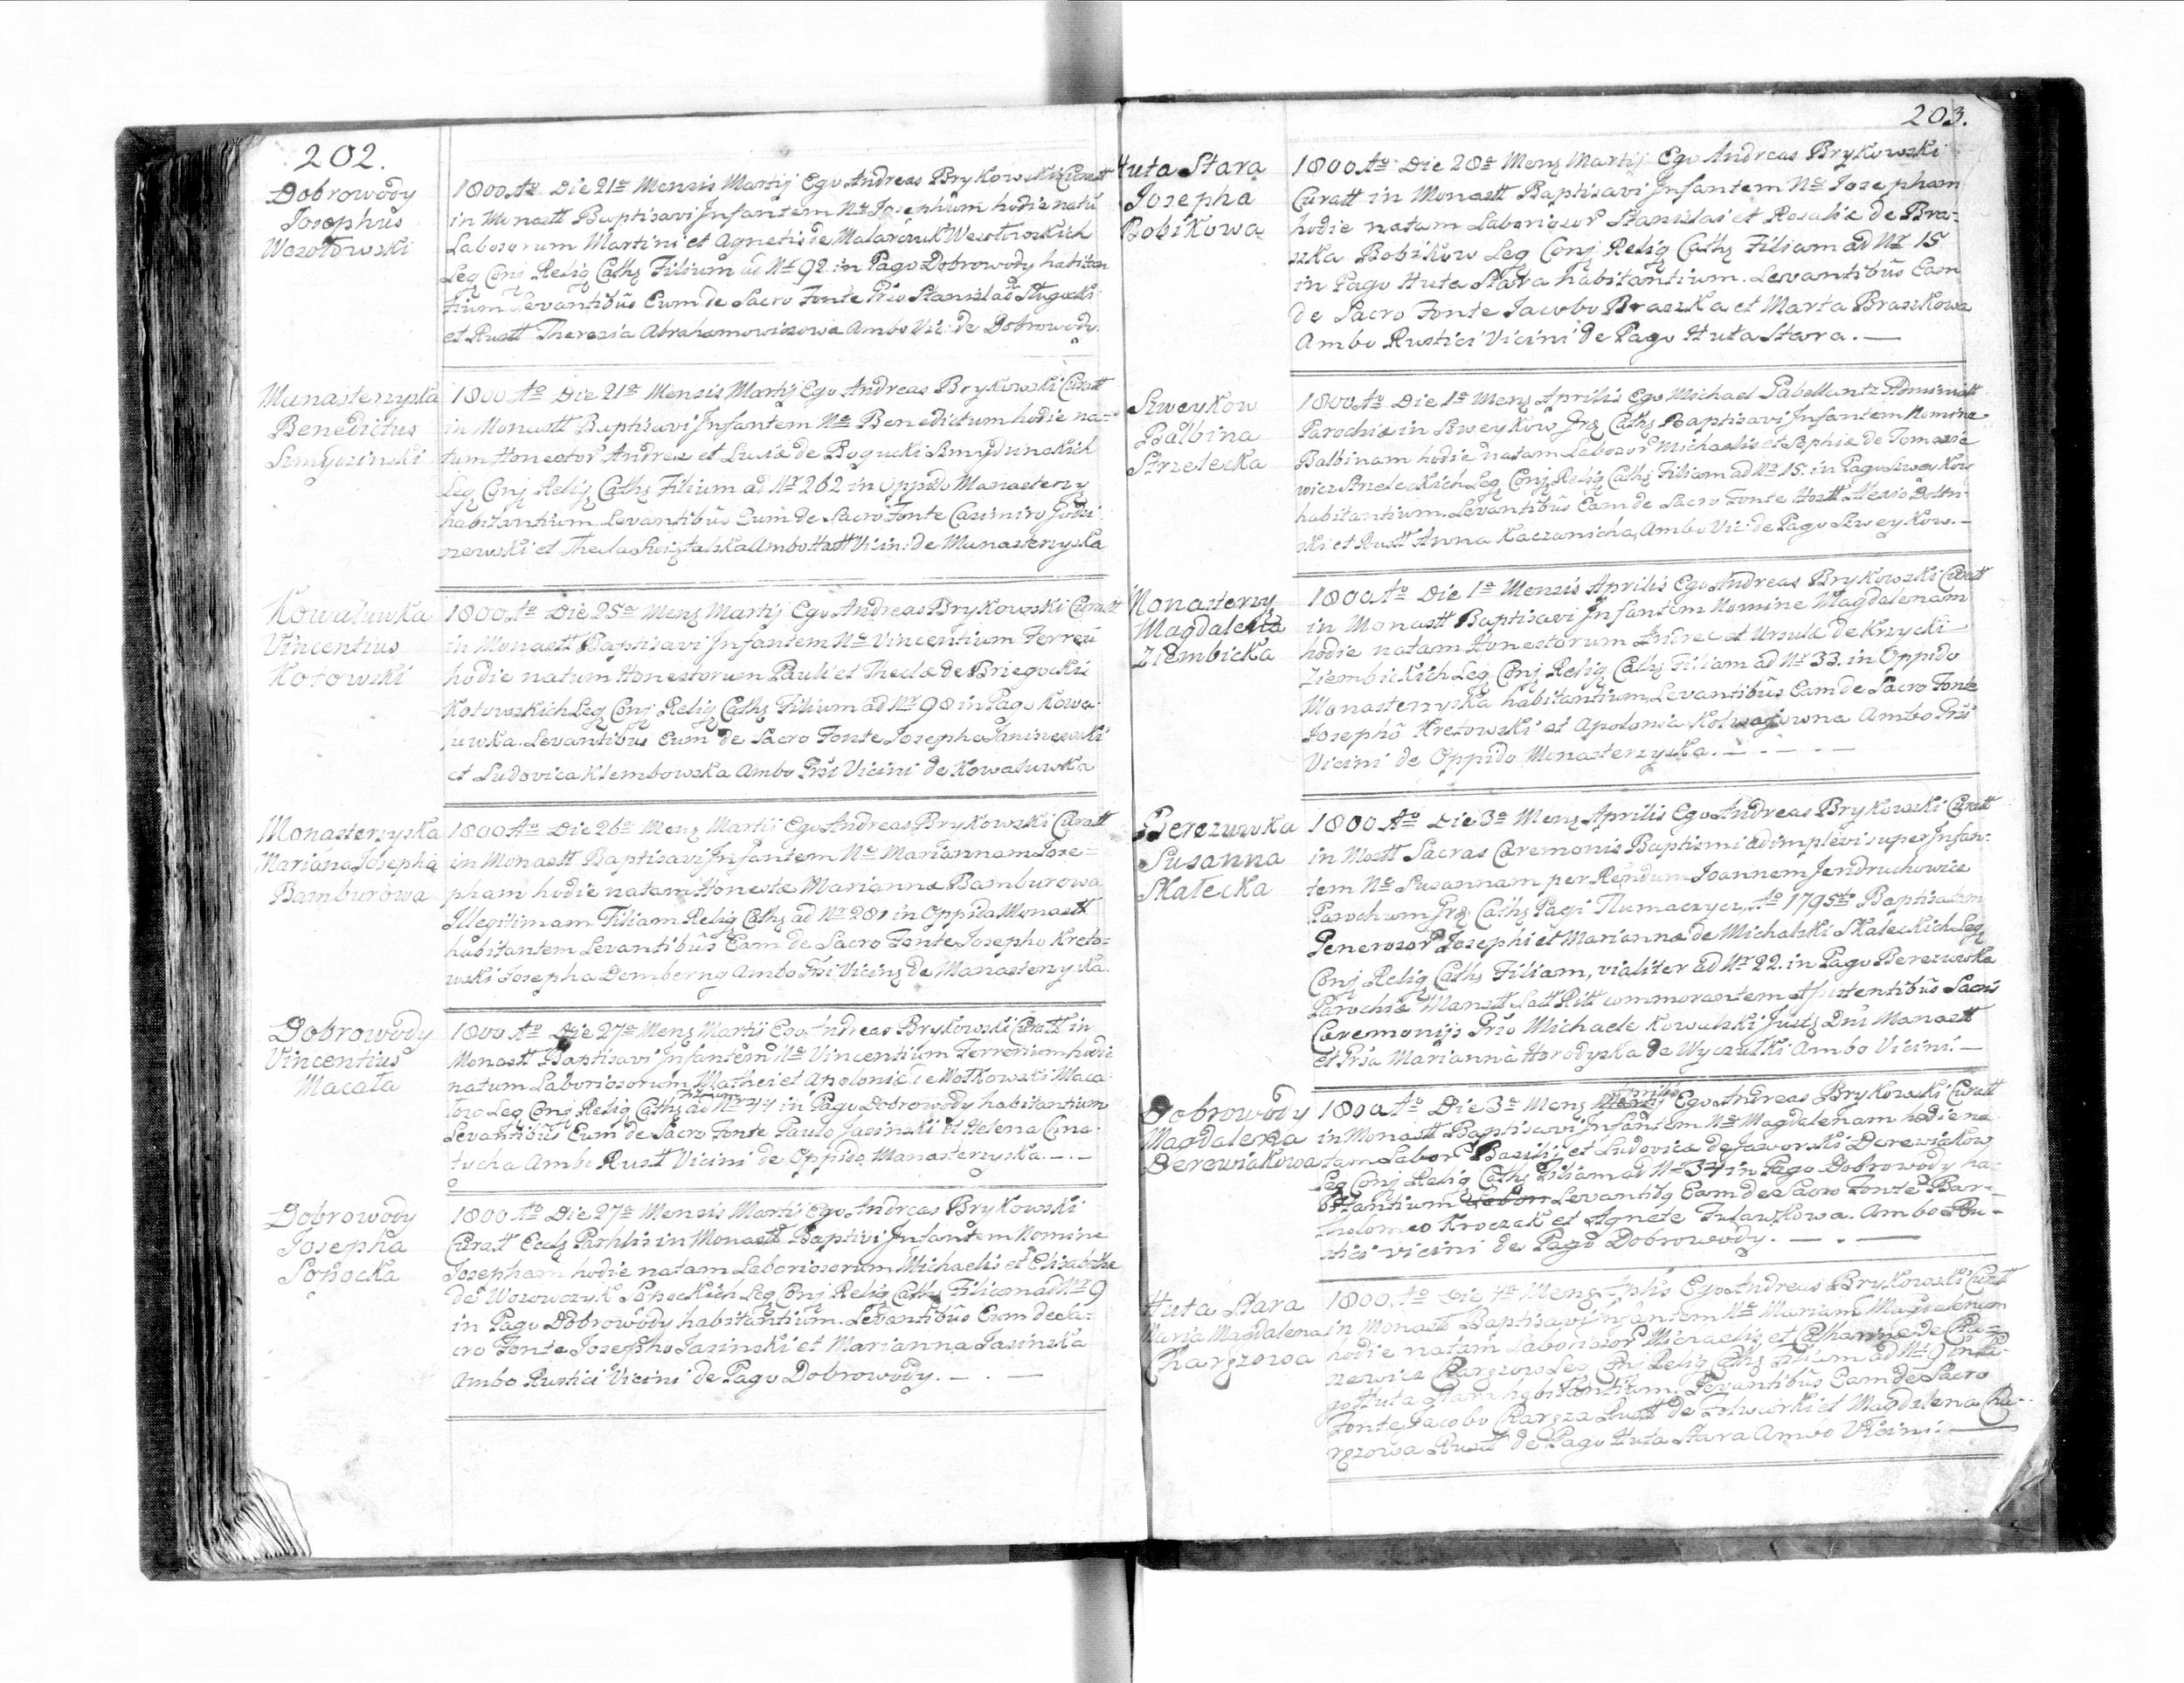 202.
Dobrowody
Josephus
Wesołowski
1800 Ao Die 21a Mensis Martij Ego Andreas Brykowski Curatt
in Monastt Baptisavi Infantem Ne Josephum hodie natũ
Laborosorum Martini et Agnetis de Malarczuk Wesołowskich
Leg Conj Relig Caths Filium ad Nr 92 in Pago Dobrowody habitan
tium Levantibũs Eum de Sacro Fonte Prio Stanislao Długocki
et Rustt Theresia Abrahamowiczowa Ambo Vic: de Dobrowody.
Munasterzyska
Benedictus
Szmyczinski
1800 Ao Die 21a Mensis Martij Ego Andreas Brykowski Curatt
in Monastt Baptisavi Infantem Ne Benedictum hodie na=
tum Honestor Andreæ et Luciæ de Bogucki Szmydzinskich
Leg Conj Relig Caths Filium ad Nr 262 in Oppido Manasterzy
habitantium Levantibũs Eum de Sacro Fonte Casimiro Godzi
szewski et Thecla Swiętalska Ambo Hstt Vicin: de Munasterzyska
Kowaluwka
Vincentius
Kotowski
1800 Ao Die 25a Mens Martij Ego Andreas Brykowski Curatt
in Monastt Baptisavi Infantem Ne Vincentium Ferreũ
hodie natum Honestorum Pauli et Theclæ de Briegockii
Kotowskich Leg Conj Relig Caths Filium ad Nr 98 in Pago Kowa-
luwka. Levantibus Eum de Sacro Fonte Josepho Janiszewski
et Ludovica Klembowska Ambo Prsi Vicini de Kowaluwka
Monasterzyska
Mariana Josepha
Bamburowa
1800 Ao Die 26a Mens Martij Ego Andreas Brykowski Curatt
in Monastt Baptisavi Infantem Ne Mariannam Jose=
pham hodie natam Honestæ Mariannæ Bamburowa
Illegitimam Filiam Relig Caths ad Nr 281 in Oppido Monastt
habitantem Levantibũs Eam de Sacro Fonte Josepho Kreto=
wski Josepha Demberng Ambo Prsi Vicing de Manasterzyska.
Dobrowody
Vincentius
Macała
1800 Ao Die 27a Mens Martij Ego Andreas Brykowski Curatt in
Monastt Baptisavi Infantem Ne Vincentium Ferrerium hodie
natum Laboriosorum Mathei et Apoloniæ de Wołkowski Maca
Filium
łow Leg Conj Relig Caths ad Nr 44 in Pago Dobrowody habitantium
Levantibũs Eum de Sacro Fonte Paulo Jasinski et Helena Cuna-
tycha Ambo Rustt Vicini de Oppido Manasterzyska.—.—
Dobrowody
Josepha
Sopocka
1800 Ao Die 27a Mensis Martij Ego Andreas Brykowski
Curatt Eccls Parhlis in Monastt Baptivi Infantem Nomine
Josepham hodie natam Laboriosorum Michaelis et Elisabethæ
de Wozowczyk Sopockich Leg Conj Relig Caths Filiam ad Nr 9
in Pago Dobrowody habitantium. Levantibũs Eum de Sa-
cro Fonte Josepho Jasinski et Marianna Jasinska
Ambo Rustici Vicini de Pago Dobrowody. — . —
203.
Huta Stara
Josepha
Bobikowa
1800 Ao Die 28a Mens Martij Ego Andreas Brykowski
Curatt in Monastt Baptisavi Infantem Ne Josepham
hodie natam Laboriosor Stanislai et Rosaliæ de Bra-
szka Bobikow Leg Conj Relig Caths Filiam ad Nr 15
in Pago Huta Stara habitantium. Levantibũs Eam
de Sacro Fonte Jacobo Braszka et Marta Braszkowa
Ambo Rustici Vicini de Pago Huta Stara. —
Szweykow
Balbina
Strzelecka
1800 Ao Die 1a Mens Aprilis Ego Michael Administt
Parochiæ in Szweykow Grg Caths Baptisavi Infantem Nomine
Balbinam hodie natam Laborosor Michaelis et Sophiæ de Tomasie
wicz Strzeleckich Leg Conj Relig Caths Filiam ad Nr 15. in Pago Szweykow
habitantium. Levantibũs Eam de Sacro Fonte Hostt Alexio
ski et Rustt Anna Kaczanicha, Ambo Vic: de Pago Szweykow.—
Monasterzy
Magdalena
Ziembicka
1800 Ao Die 1a Mensis Aprilis Ego Andreas Brykowski Curatt
in Monastt Baptisavi Infantem Nomine Magdalenam
hodie natam Honestorum Andreæ et Ursulæ de Krzycki
Ziembickich Leg Conj Relig Caths Filiam ad Nr 33. in Oppido
Monasterzyska habitantium, Levantibũs Eam de Sacro Fonte
Josephô Kretowski et Apolonia Ambo Prsi
Vicini de Oppido Monasterzyska. — . — . — . —
Berezuwka
Susanna
Skałecka
1800 Ao Die 3a Mens Aprilis Ego Andreas Brykowski Curatt
in Mostt Sacras Ceremonis Baptismi adimplevi super Infan-
tem Ne Susannam per Rendum Joannem Jendruchowicz
Parochum Grg Caths Pagi Tlumaczyez, Ao 1795to Baptisatam
Generosor Josephi et Mariannæ de Michalski Skałeckich Leg
Conj Relig Caths Filiam, vialiter ad Nr 22. in Pago Berezuwka
Parochiæ Manastt Latt Ritt commorantem Assistentibũs Sacris
Ceremonijs Prio Michaele Kowalski Justs Dni Monastt
et Prsa Marianna Horodyska de Wyczułki Ambo Vicini. —
Dobrowody
Magdalena
Derewiakowa
Aprilis
1800 Ao Die 3a Mens Martij Ego Andreas Brykowski Curatt
in Monastt Baptisavi Infantem Ne Magdalenam hodie na
tam Labor Basilij et Ludovicæ de Jaworski Derewiakow
Leg Conj Relig Caths Filiam ad Nr 34 in Pago Dobrowody ha-
bitantium Labor Levantibg Eam de Sacro Fonte Bar-
tholomeo Kroczak et Agnete Fuławkowa. Ambo Ru-
stici vicini de Pago Dobrowody. — . —
Huta Stara
Maria Magdalena
Chargzowa
1800. Ao Die 4a Mens Aplis Ego Andreas Brykowski Curatt
in Monastt Baptisavi Infantem Ne Mariam Magdalenam
hodie natam Laboriosor Michaelis et Catharinæ de
Leg Conj Relig Caths Filiam ad Nr 9 in Pa-
go Huta Stara habitantium. Levantibũs Eam de Sacro
Fonte Jacobo Chargza Rustt de Folwarki et Magdalena Cha-
rgzowa Rustt de Pago Huta Stara Ambo Vicini. —